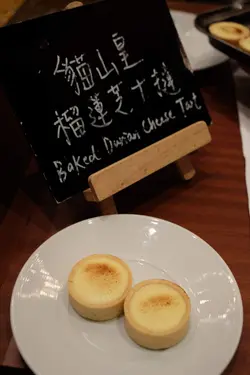 貓山皇
榴蓮芝士撻
Baked Durian Cheese Tart